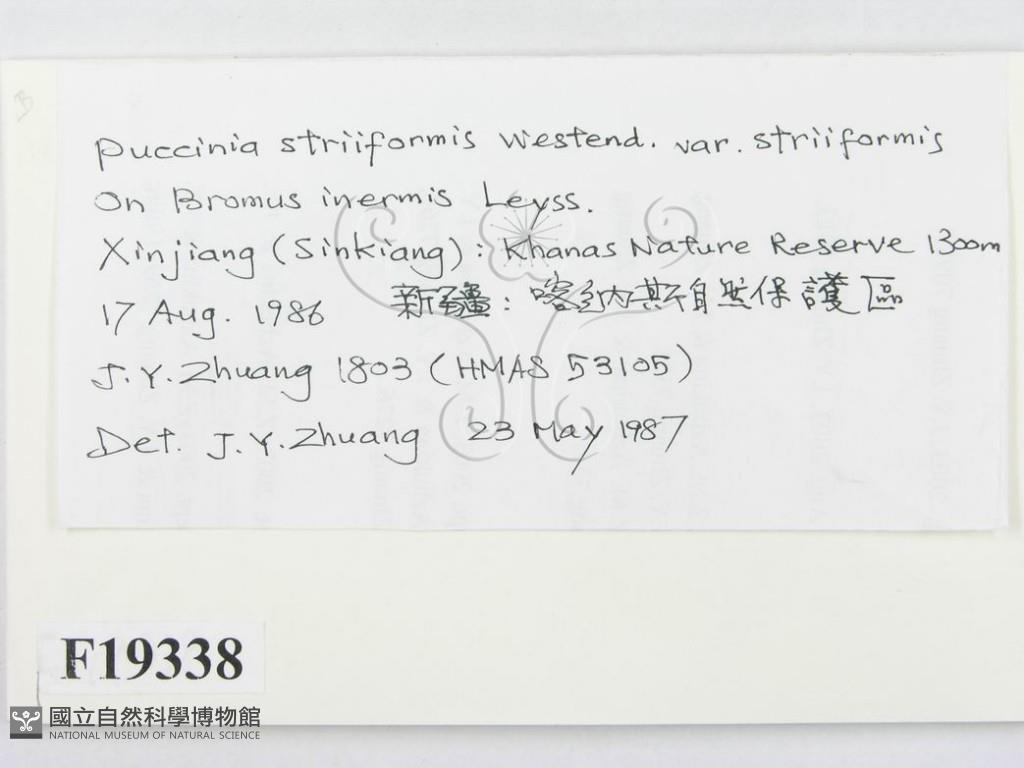 Puccinia striiformis Westend. var. striiformis
On Bromus inermis Leyss.
Xinjiang (Sinkiang): Khanas Nature Reserve 1300m
17 Aug. 1986 新疆: 喀納斯自然保護區
J.Y. Zhuang 1803 (HMAS 53105)
Det. J.Y. Zhuang 23 May 1987
F19338
國立自然科學博物館
NATIONAL MUSEUM OF NATURAL SCIENCE